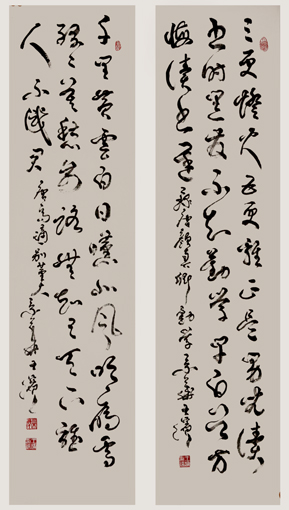 三更燈火五更雞正是男兒讀
书时黑发不知勤学早白首方
悔读书迟 唐顏真卿勸学
千里黄雲白日曛北風吹雁雪
紛々莫愁前路無知己天下誰
人不識君 唐高適別董大